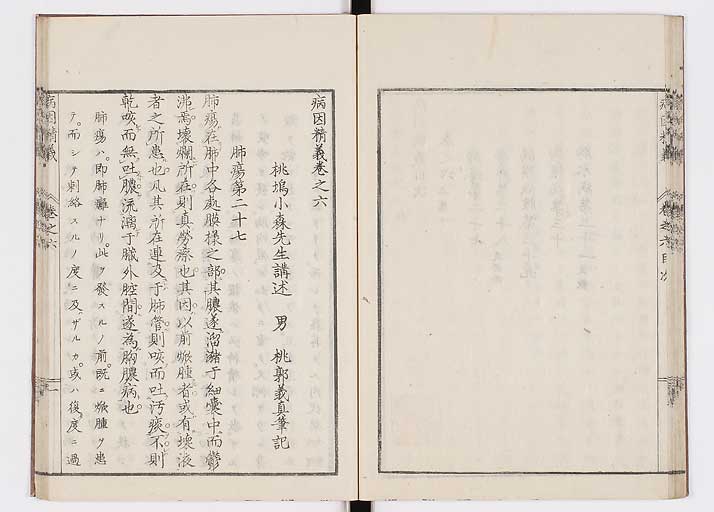 病因精義
卷之六目次
病因精義卷之六
桃塢小森先生講述　男　桃郭義真筆記
肺瘍第二十七
肺瘍在肺中各處膜様之部其膿遂溜瀦于細囊中而鬱
沸焉壞爛所在則真勞瘵也其因以前焮腫者或有壞液
者之所患也凡其所在連及于肺管則咳而吐汚痰不則
乾咳而無吐膿流漓于臟外腔間遂為胸膿病也
肺瘍ハ即肺癰ナリ此ヲ發スルノ前既ニ焮腫ヲ患
テ而シテ刺絡スルノ度ニ及ザルカ或ハ後度ニ過
病因精義
卷之六
一